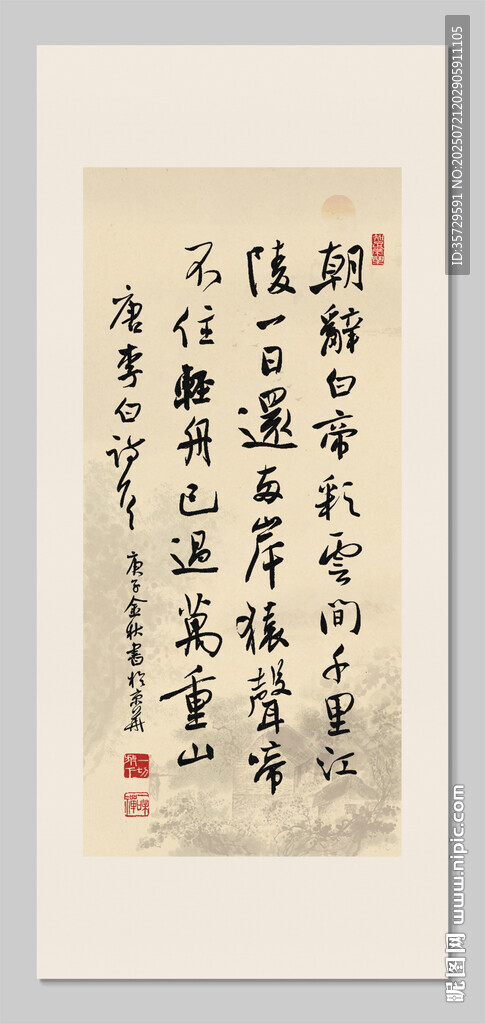 朝辭白帝彩雲間千里江
陵一日還兩岸猿聲啼
不住輕舟已過萬重山
唐李白詩
庚子金秋書於京華
ID:35729591 NO:20250721202905911105
昵图网 www.nipic.com